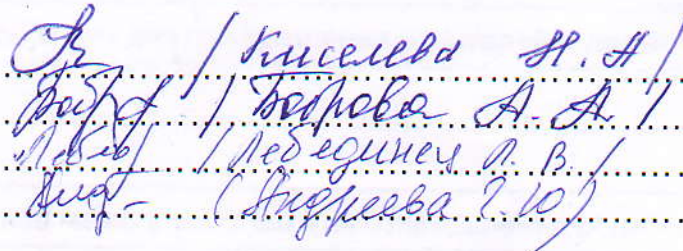 / Киселева Н. А /
/ Боброва А. А. /
/ Лебединец Л. В. /
(Андреева Г. Ю)